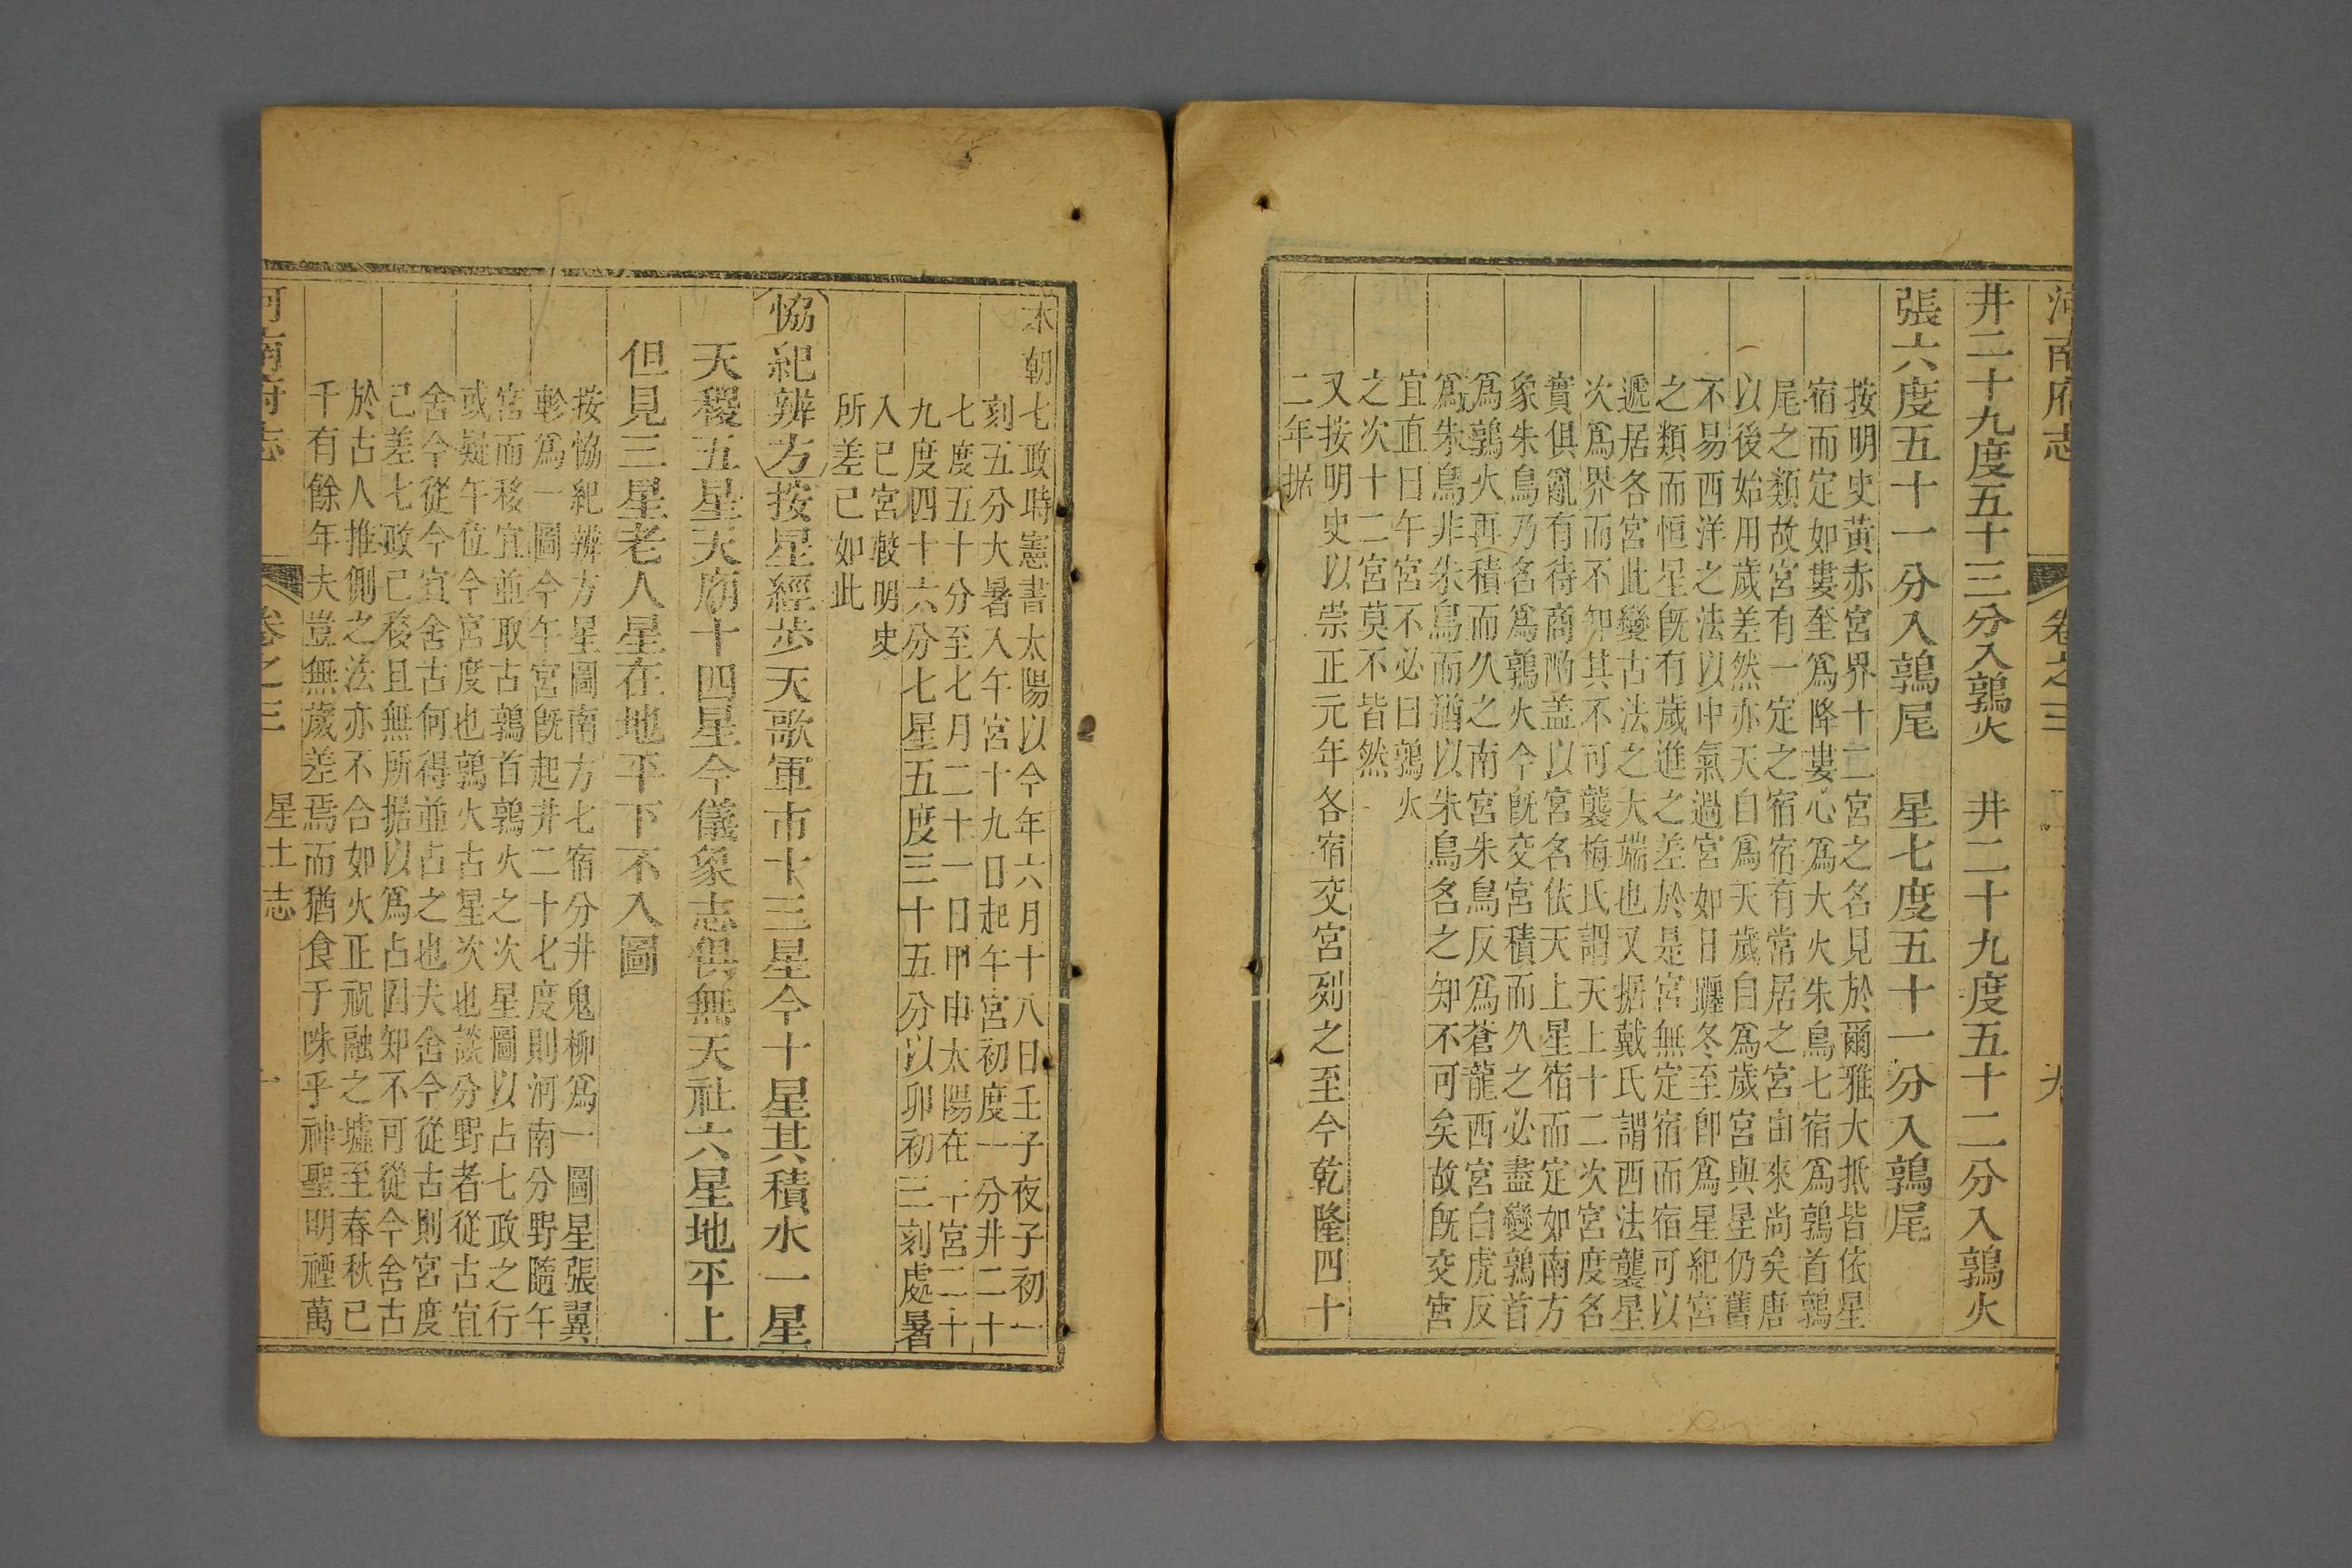 河南府志 卷之三 九
井二十九度五十三分入鶉火 井二十九度五十二分入鶉火
張六度五十一分入鶉尾 星七度五十一分入鶉尾
按明史黃赤宮界十二宮之名見於爾雅大抵皆依星
宿而定如婁奎爲降婁心爲大火朱鳥七宿爲鶉首鶉
尾之類故宮有一定之宿宿有常居之宮由來尚矣唐
以後始用歲差然亦天自爲天歲自爲歲宮與星仍舊
不易西洋之法以中氣過宮如日躔冬至卽爲星紀宮
之類而恒星旣有歲進之差於是宮無定宿而宿可以
遞居各宮此變古法之大端也又据戴氏謂西法襲星
次爲界而不知其不可襲梅氏謂天上十二次宮度名
實俱亂有待商酌蓋以宮名依天上星宿而定如南方
象朱鳥乃名爲鶉火今旣交宮積而久之必盡變鶉首
爲鶉火再積而久之南宮朱鳥反爲蒼龍西宮白虎反
爲朱鳥非朱鳥而猶以朱鳥名之知不可矣故旣交宮
宜直曰午宮不必曰鶉火
之次十二宮莫不皆然
又按明史以崇正元年各宿交宮列之至今乾隆四十
二年据
本朝七政時憲書太陽以今年六月十八日壬子夜子初一
刻五分大暑入午宮十九日起午宮初度一分井二十
七度五十分至七月二十一日甲申太陽在午宮二十
九度四十六分七星五度三十五分以卯初三刻處暑
入巳宮較明史
所差已如此
協紀辨方按星經步天歌軍市十三星今十星其積水一星
天稷五星天廟十四星今儀象志俱無天社六星地平上
但見三星老人星在地平下不入圖
按協紀辨方星圖南方七宿分井鬼柳爲一圖星張翼
軫爲一圖今午宮旣起井二十七度則河南分野隨午
宮而移宜並取古鶉首鶉火之次星圖以占七政之行
或疑午位今宮度也鶉火古星次也談分野者從古宜
舍今從今宜舍古何得並占之也夫舍今從古則宮度
已差七政已移且無所据以爲占固知不可從今舍古
於古人推測之法亦不合如火正祝融之墟至春秋已
千有餘年夫豈無歲差焉而猶食于咮乎神聖明禋萬
河南府志 卷之三 星土志